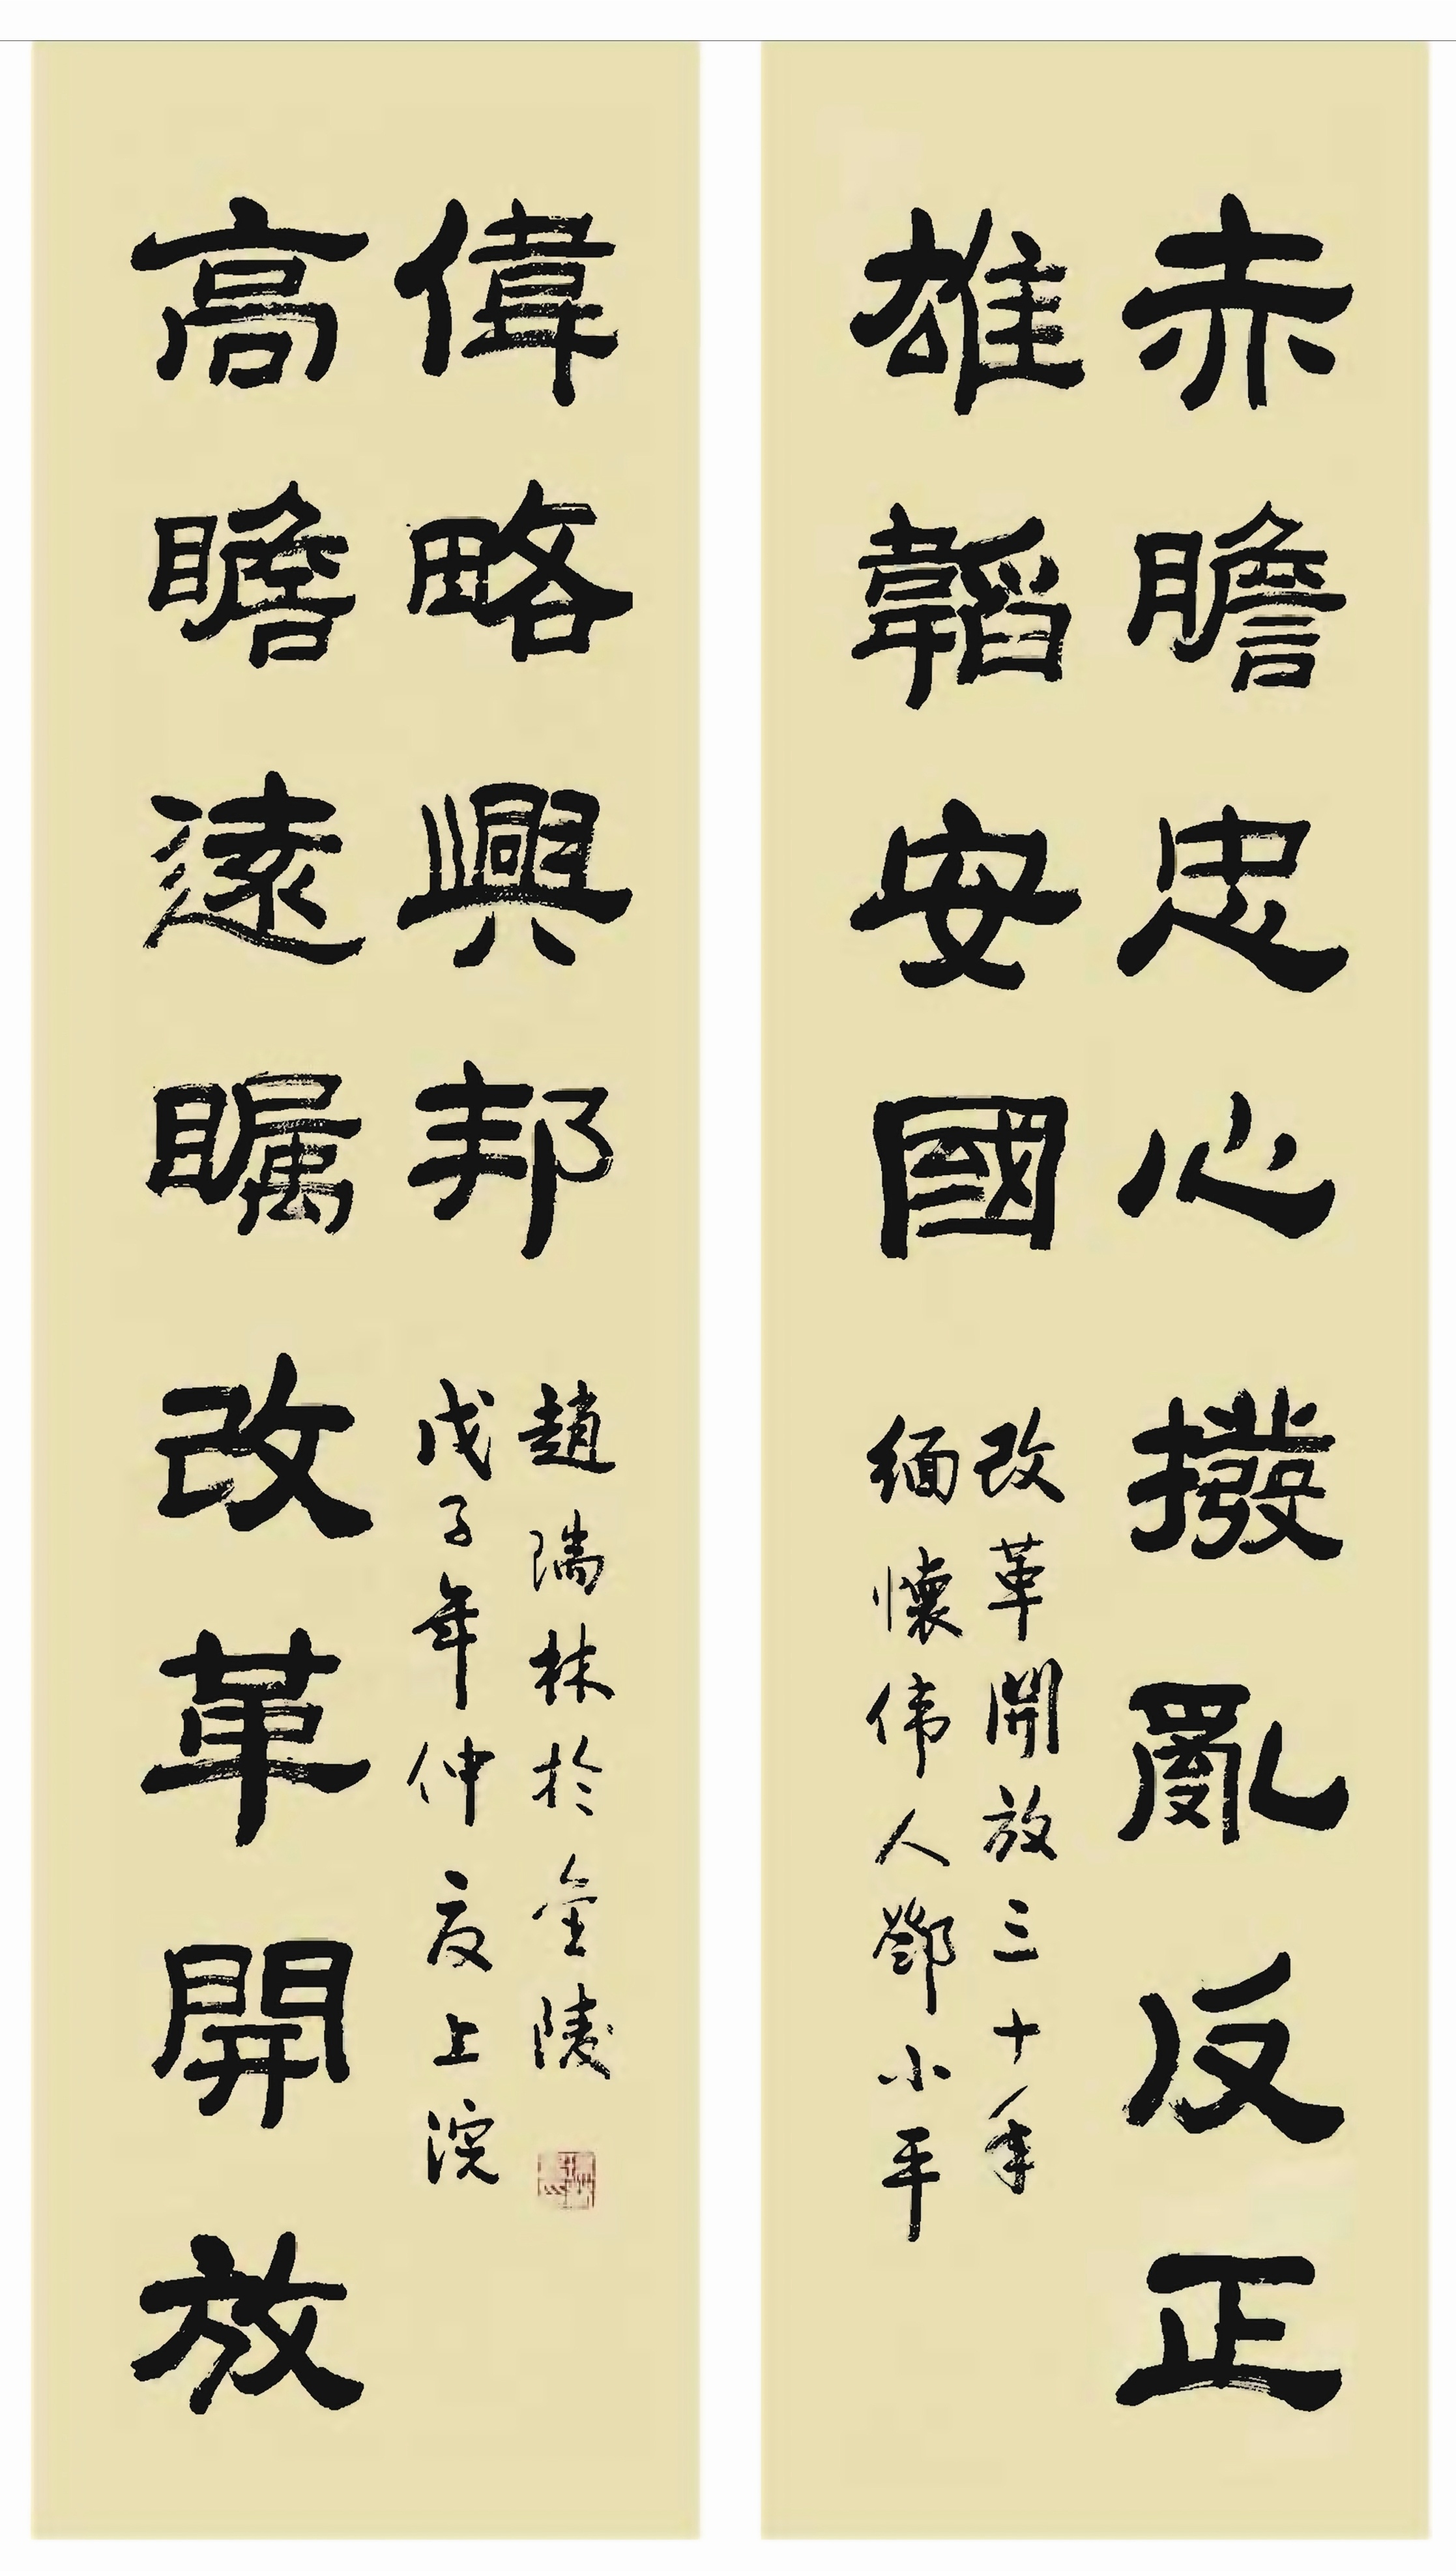 赤膽忠心撥亂反正
雄韜安國
改革開放三十年
緬懷伟人鄧小平
高瞻遠瞩改革開放
偉略興邦
戊子年仲夏上浣
趙瑞林於金陵